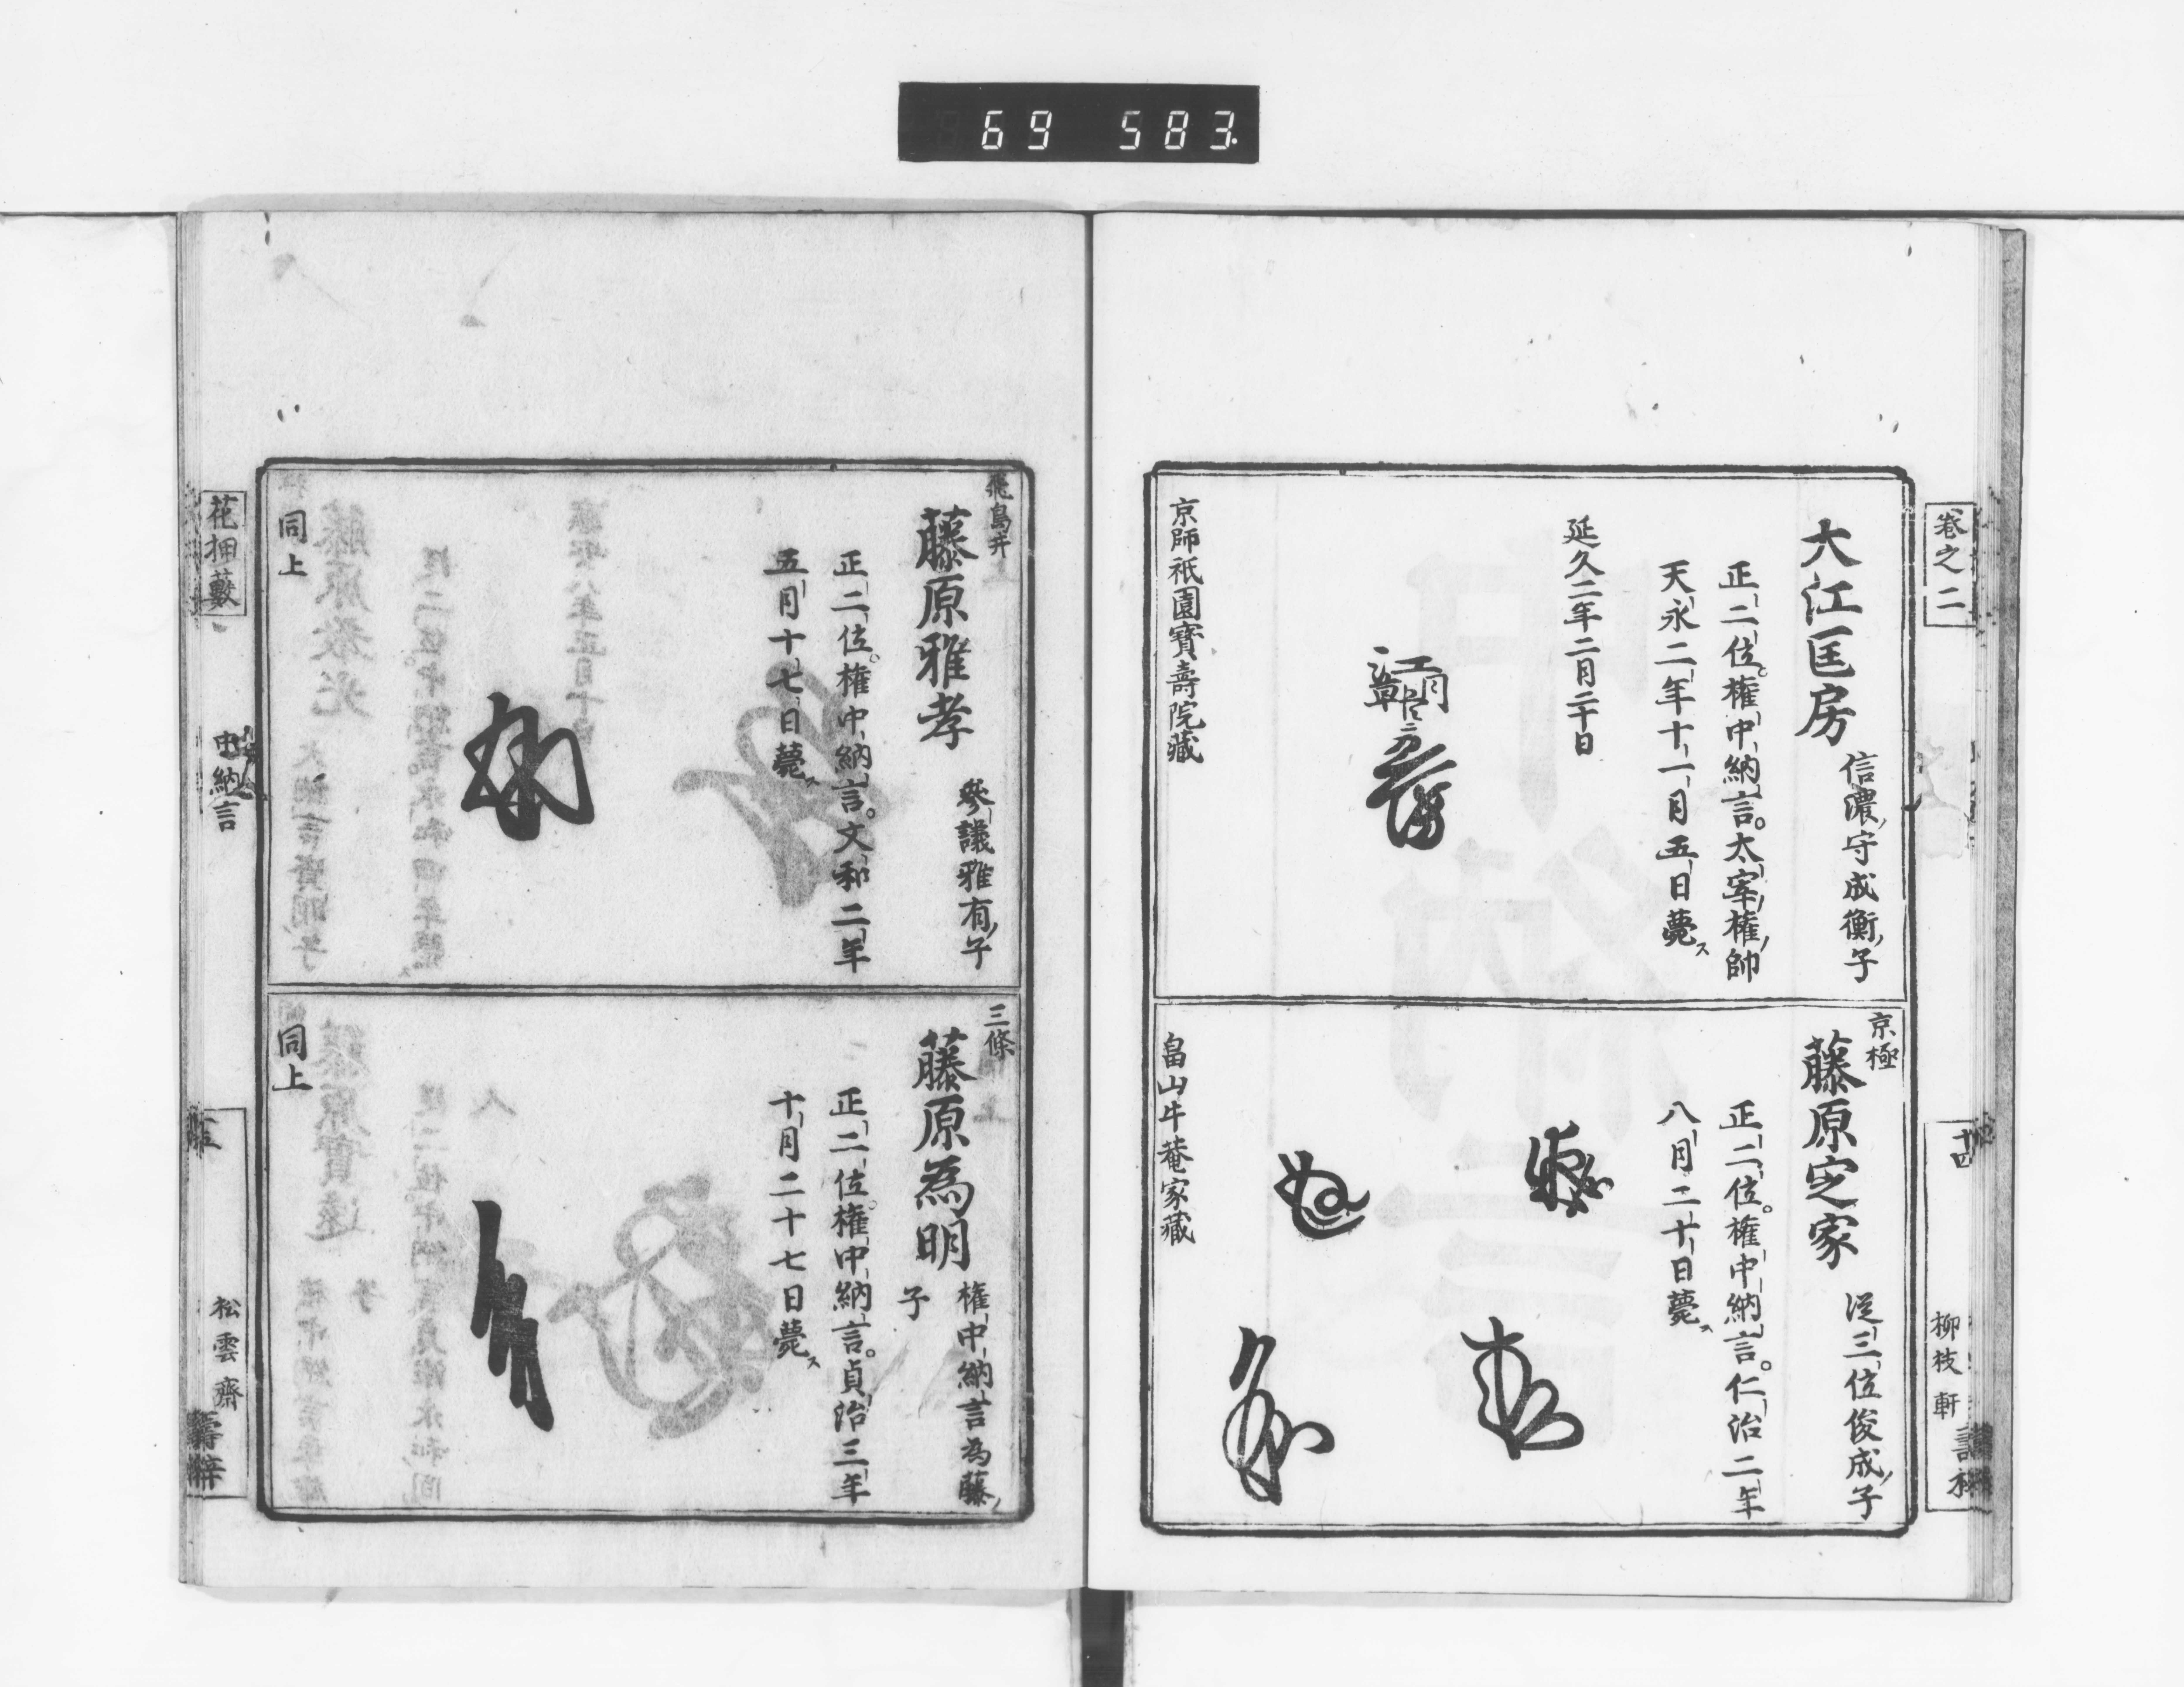 69 583.
卷之二
十四
柳枝軒
大江匡房
信濃守成衡子
正二位。権中納言。太宰権帥
天永二年十一月五日薨ス
延久二年二月二十日
京師祇園寶壽院藏
京極
藤原定家
従三位俊成子
正二位。権中納言。仁治二年
八月二十日薨ス
畠山牛菴家藏
飛鳥井
藤原雅孝
參議雅有子
正二位。権中納言。文和二年
五月十七日薨ス
同上
三條
藤原為明
権中納言為藤
子
正二位。権中納言。貞治三年
十月二十七日薨ス
同上
花押藪
中納言
松雲齋
壽梓